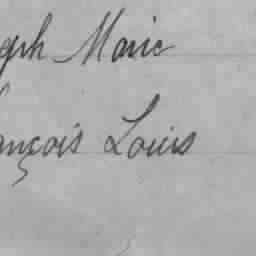 eph Marie
ançois Louis